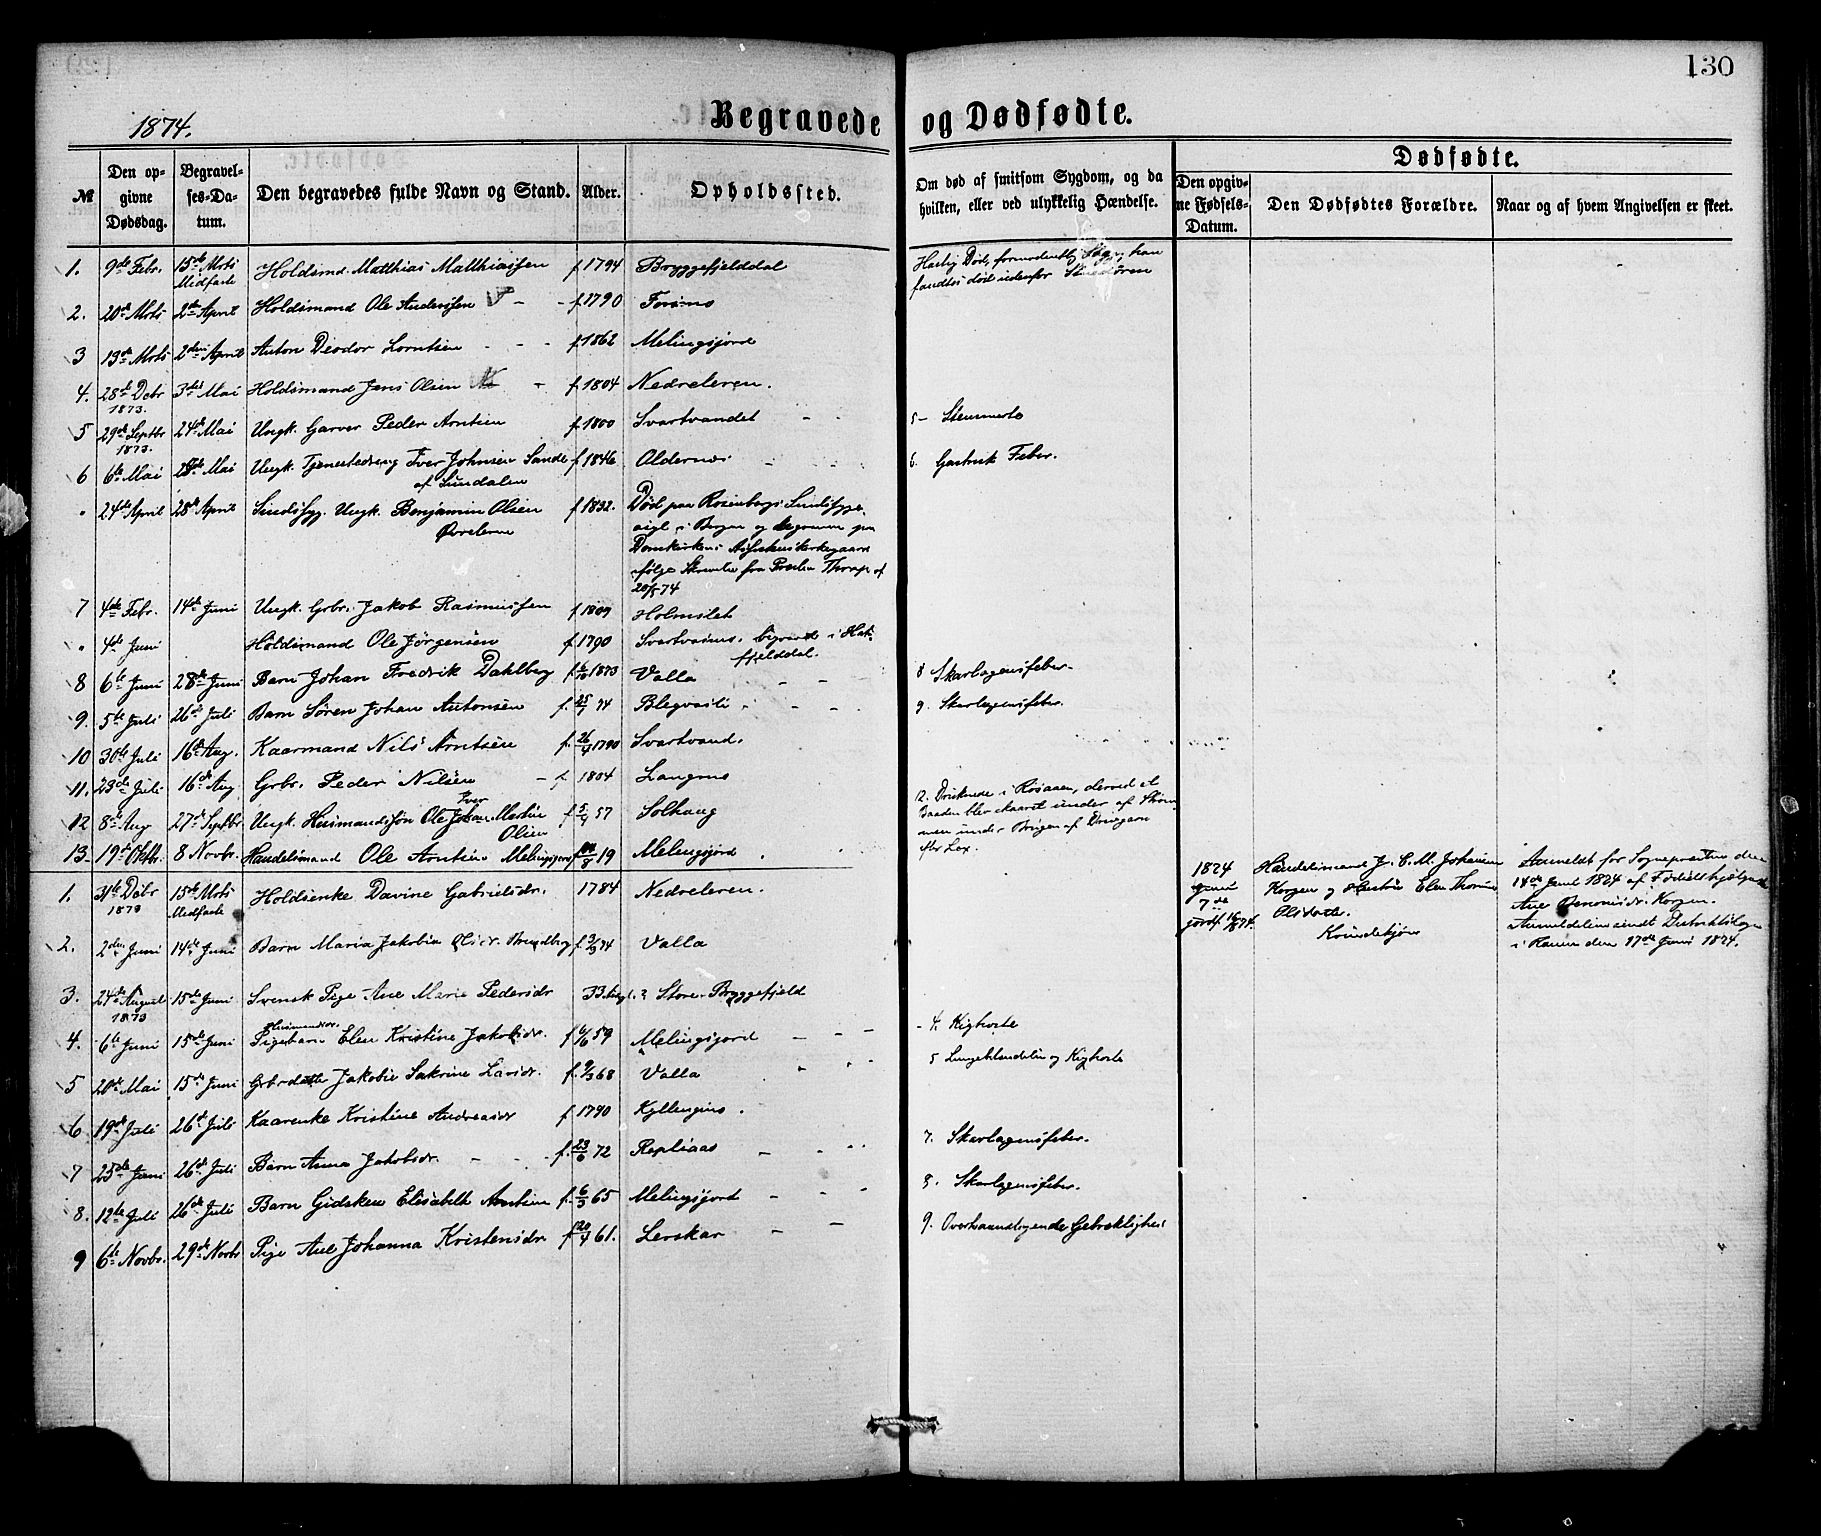 130
1874.
Begravede og Dødfødte.
№
Den opgivne Dødsdag.
Begravelses-Datum.
Den begravedes fulde Navn og Stand.
Alder.
Opholdssted.
Om død af smitsom Sygdom, og da
hvilken, eller ved ulykkelig Hændelse.
Dødfødte.
Den opgivne Fødsels-Datum.
Den Dødfødtes Forældre.
Naar og af hvem Angivelsen er skeet.
1. 9de Febr. 15de Mrts Midfaste Holdsmd. Matthias Matthiassen f 1794 Bryggefjelddal Hastig Død, formodentlig han
fandtes død udenfor
2. 20de Mrts 2den April Holdsmand Ole Anderssen f. 1790 Forsmo
3 13de Mrts 2den April Anton Deodor Lorntsen f 1862 Melingsjord
4. 28de Debr 1873. 3die Mai Holdsmand Jens Olsen f. 1804 Nedreleren.
5 29de Septbr 1873. 24de Mai Ungk. Garver Peder Arntsen f. 1800 Svartvandet 5-
6 6te Mai 28de Mai Ungk. Tjenestedreng Iver Johnsen Sande f 1846 Aldernes 6. Gastrisk Feber.
af Sundalen
" 24de April 28de April Sindssyg. Ungk. Benjamin Olsen f 1832. Død paa Rosenbergs Sindssyge-
Øvreleren asyl i Bergen og begraven paa
Domkirkens kirkegaard
ifølge Skrivelse fra Thorup af
20/5 74
7 4de Febr. 14de Juni Ungk. Grbr. Jakob Rasmussen f 1809 Holmslet
" 4de Juni Holdsmand Ole Jørgensen f. 1790 Svartvasmo. begravet i Hat-
fjelddal.
8 6te Juni 28de Juni Barn Johan Fredrik Dahlberg 1873 Valla 8 Skarlagensfeber.
9. 5te Juli 26de Juli Barn Søren Johan Antonsen f. 74 9. Skarlagensfeber.
10 30te Juli 16de Aug. Kaarmand Nils Arntsen f. 26/4 1790 Svartvand.
11. 23de Juli 16de Aug Grbr. Peder Nilsen f 1804 Langmo
12 8de Aug 27de Septbr. Ungk. Husmandssøn Ole Iver Martin f 5/4 57 Solhaug 12. Druknede i Røsaaen, derved at
Olsen Baaden blev skaaret under af Strøm-
men under Brugen af Drivgarn
efter Lax.
13. 19de Oktbr. 8 Novbr. Handelsmand Ole Arntsen Melingsjord 19 Melingsjord
1. 31te Debr 1873 15de Mrts Midfaste Holdsenke Davine Gabrielsdr. 1784 Nedreleren.
1824 Juni 7de
Handelsmand J. C. M. Johansen
Korgen og Hustru Elen
Olsdatter.
Anmeldt for Sognepræsten den
14de Juni 1824 af Fødselshjælperske
Ane Benonisdr. Korgen.
Anmeldelsen sendt Distriktslægen
i Ranen den 17de Juni 1824.
2. 2den Juni 14de Juni Barn Maria Jakobia Olsdr. f 3/3 74 Valla
3. 24de August 1873 15de Juni Svensk Pige Ane Marie Pedersdr 33 Store-Bryggefjeld
4. 6te Juni 15de Juni Husmandsdr. Pigebarn Elen Kristine Jakobsdr. f 6/6 59 Melingsjord 4. Kighoste
5 20de Mai 15de Juni Grbrdatter Jakobie Sakrine Larsdr. f. 9/3 68 Valla 5 Lungebetændelse og Kighoste
6 19de Juli 26de Juli Kaarenke Kristine Andreasdr f. 1790 Kyllingmo.
7 25de Juni 26de Juli Barn Anna Jakobsdr. f. 23/6 72 7. Skarlagensfeber.
8. 12te Juli 26de Juli Barn Gidsken Elisabeth Arntsen f. 6/3 65 Melingsjord 8. Skarlagensfeber.
9 6te Novbr. 29de Novbr Pige Ane Johanna Kristensdr. f 20/4 61. Lerskar 9. Overhaandtagende Gebrækligheder